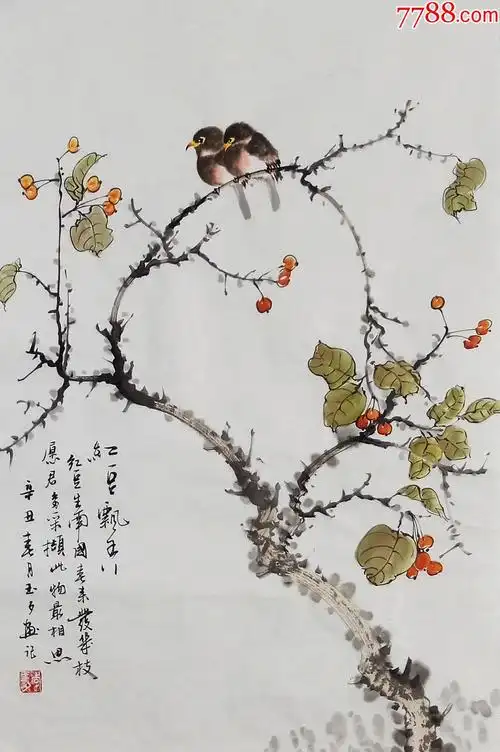 7788.com
红豆飘香
红豆生南國春来發幾枝
愿君多采擷此物最相思
辛丑春月玉